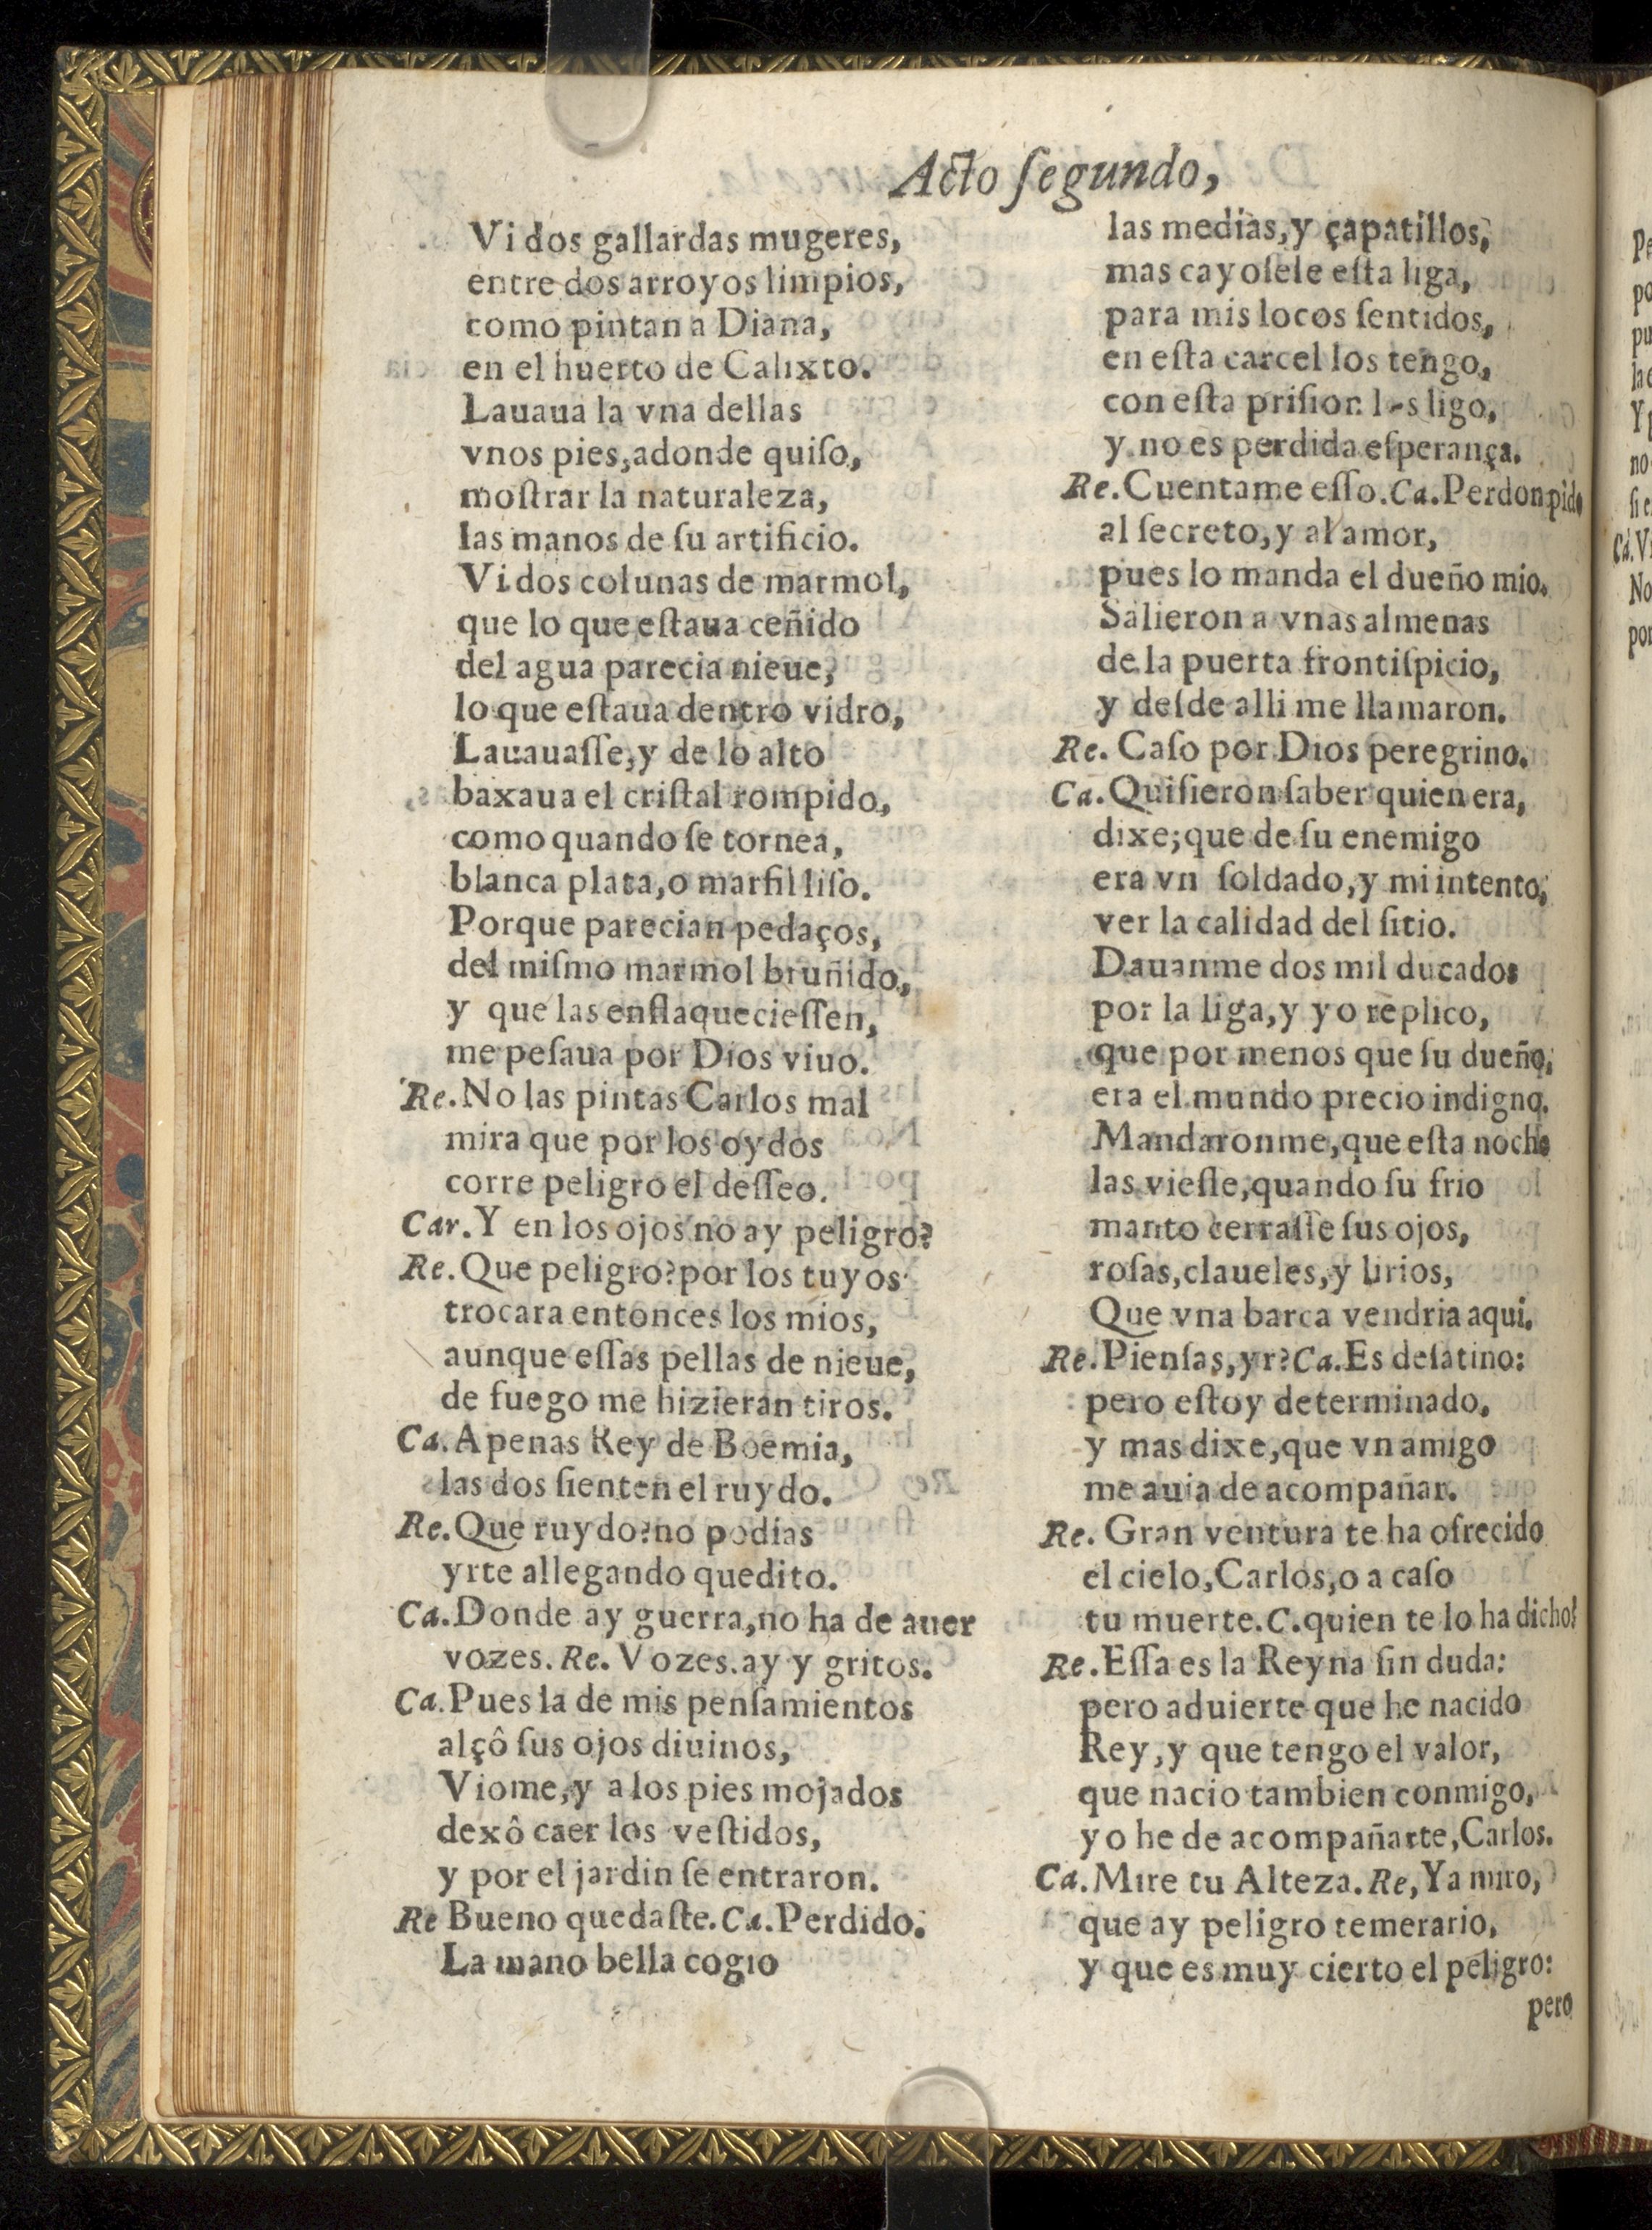 Acto ſegundo,
Vi dos gallardas mugeres,
entre dos arroyos limpios,
como pintan a Diana,
en el huerto de Calixto.
Lauaua la vna dellas
vnos pies, adonde quiſo,
moſtrar la naturaleza,
las manos de ſu artificio.
Vi dos colunas de marmol,
que lo que eſtaua ceñido
del agua parecia nieue,
lo que eſtaua dentro vidro,
Lauauaſſe, y de lo alto
baxaua el criſtal rompido,
como quando ſe tornea,
blanca plata, o marfil liſo.
Porque parecian pedaços,
del miſmo marmol bruñido,
y que las enflaquecieſſen,
me peſaua por Dios viuo.
Re. No las pintas Carlos mal
mira que por los oydos
corre peligro el deſſeo.
Car. Y en los ojos no ay peligro?
Re. Que peligro? por los tuyos
trocara entonces los mios,
aunque eſſas pellas de nieue,
de fuego me hizieran tiros.
Ca. Apenas Rey de Boemia,
las dos ſienten el ruydo.
Re. Que ruydo? no podias
yrte allegando quedito.
Ca. Donde ay guerra, no ha de auer
vozes. Re. Vozes ay y gritos.
Ca. Pues la de mis penſamientos
alçô ſus ojos diuinos,
Viome, y a los pies mojados
dexô caer los veſtidos,
y por el jardin ſe entraron.
Re Bueno quedaſte. Ca. Perdido.
La mano bella cogio
las medias, y çapatillos,
mas cayoſele eſta liga,
para mis locos ſentidos,
en eſta carcel los tengo,
con eſta priſion l-s ligo,
y no es perdida eſperança.
Re. Cuentame eſſo. Ca. Perdon pido
al ſecreto, y al amor,
pues lo manda el dueño mio.
Salieron a vnas almenas
de la puerta frontiſpicio,
y deſde alli me llamaron.
Re. Caſo por Dios peregrino.
Ca. Quiſieron ſaber quien era,
dixe; que de ſu enemigo
era vn ſoldado, y mi intento,
ver la calidad del ſitio.
Dauanme dos mil ducados
por la liga, y yo replico,
que por menos que ſu dueño,
era el mundo precio indigno.
Mandaronme, que eſta noche
las vieſſe, quando ſu frio
manto cerraſſe ſus ojos,
roſas, claueles, y lirios,
Que vna barca vendria aqui.
Re. Pienſas, yr? Ca. Es deſatino:
pero eſtoy determinado,
y mas dixe, que vn amigo
me auia de acompañar.
Re. Gran ventura te ha ofrecido
el cielo, Carlos, o a caſo
tu muerte. C. quien te lo ha dicho?
Re. Eſſa es la Reyna ſin duda:
pero aduierte que he nacido
Rey, y que tengo el valor,
que nacio tambien conmigo,
yo he de acompañarte, Carlos.
Ca. Mire tu Alteza. Re, Ya miro,
que ay peligro temerario,
y que es muy cierto el peligro:
pero